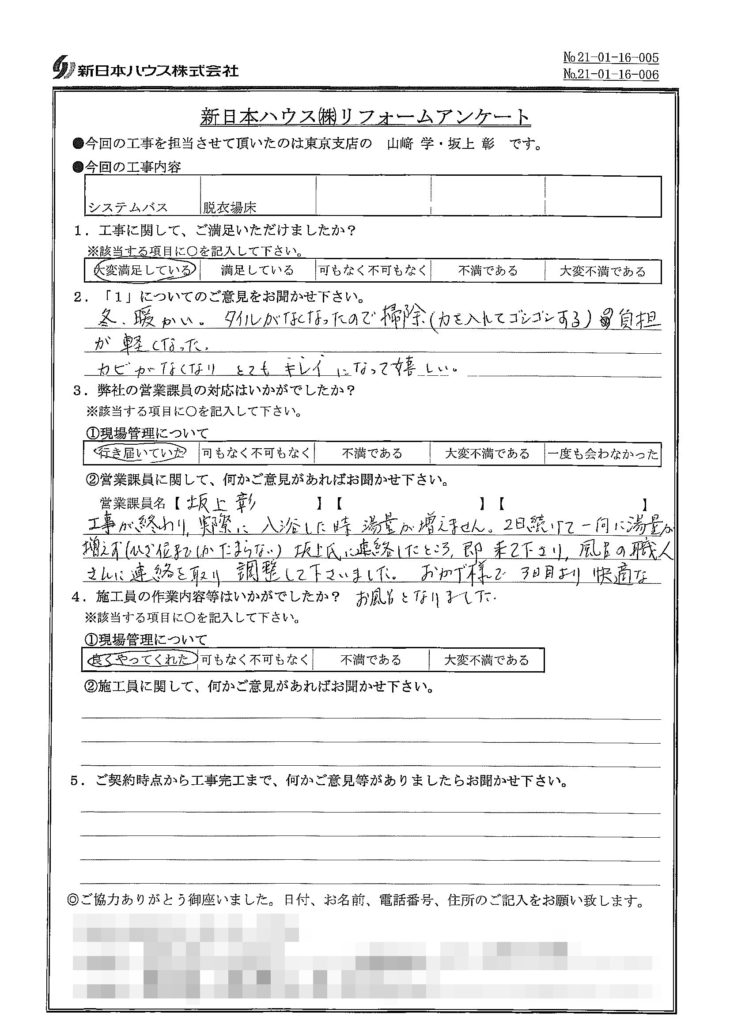 新日本ハウス株式会社
№21-01-16-005
№21-01-16-006
新日本ハウス㈱リフォームアンケート
●今回の工事を担当させて頂いたのは東京支店の 山﨑 学・坂上 彰 です。
●今回の工事内容
システムバス 脱衣場床
1．工事に関して、ご満足いただけましたか？
※該当する項目に〇を記入して下さい。
大変満足している 満足している 可もなく不可もなく 不満である 大変不満である
2．「1」についてのご意見をお聞かせ下さい。
冬、暖かい。タイルがなくなったので掃除(力を入れてゴシゴシする)の負担
が軽くなった。
カビがなくなり とても キレイ になって嬉しい。
3．弊社の営業課員の対応はいかがでしたか？
※該当する項目に〇を記入して下さい。
①現場管理について
行き届いていた 可もなく不可もなく 不満である 大変不満である 一度も会わなかった
②営業課員に関して、何かご意見があればお聞かせ下さい。
営業課員名【 坂上 彰 】【 】【 】
工事が終わり、実際に 入浴した時 湯量が増えません。2日続けて一向に湯量が
増えず(ひざ位までしかたまらない) 坂上氏に連絡したところ、即 来て下さり、風呂の職人
さんに連絡を取り 調整して下さいました。 おかげ様で 3日目より 快適な
4．施工員の作業内容等はいかがでしたか？ お風呂となりました。
※該当する項目に〇を記入して下さい。
①現場管理について
良くやってくれた 可もなく不可もなく 不満である 大変不満である
②施工員に関して、何かご意見があればお聞かせ下さい。
5．ご契約時点から工事完工まで、何かご意見等がありましたらお聞かせ下さい。
◎ご協力ありがとう御座いました。日付、お名前、電話番号、住所のご記入をお願い致します。